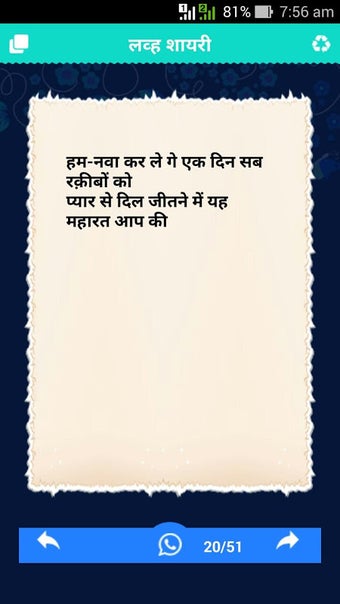 1 2 81% 7:56 am
लव्ह शायरी
हम-नवा कर ले गे एक दिन सब
रक़ीबों को
प्यार से दिल जीतने में यह
महारत आप की
20/51